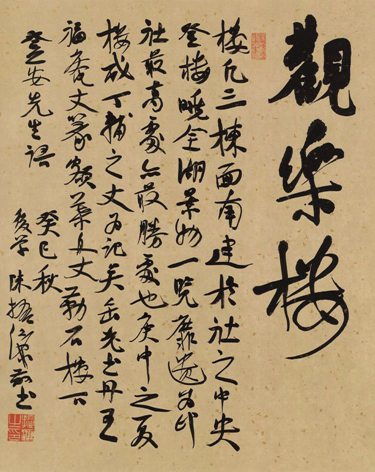 觀樂樓
樓凡三棟面南建於社之中央
登樓全湖景物一覽靡遺為印
社最高處亦最勝處也庚申之夏
樓成丁輔之丈為記吳缶老書丹王
福庵丈篆額葉舟丈勒石樓下
安先生語
癸巳秋
後學陳振濂書